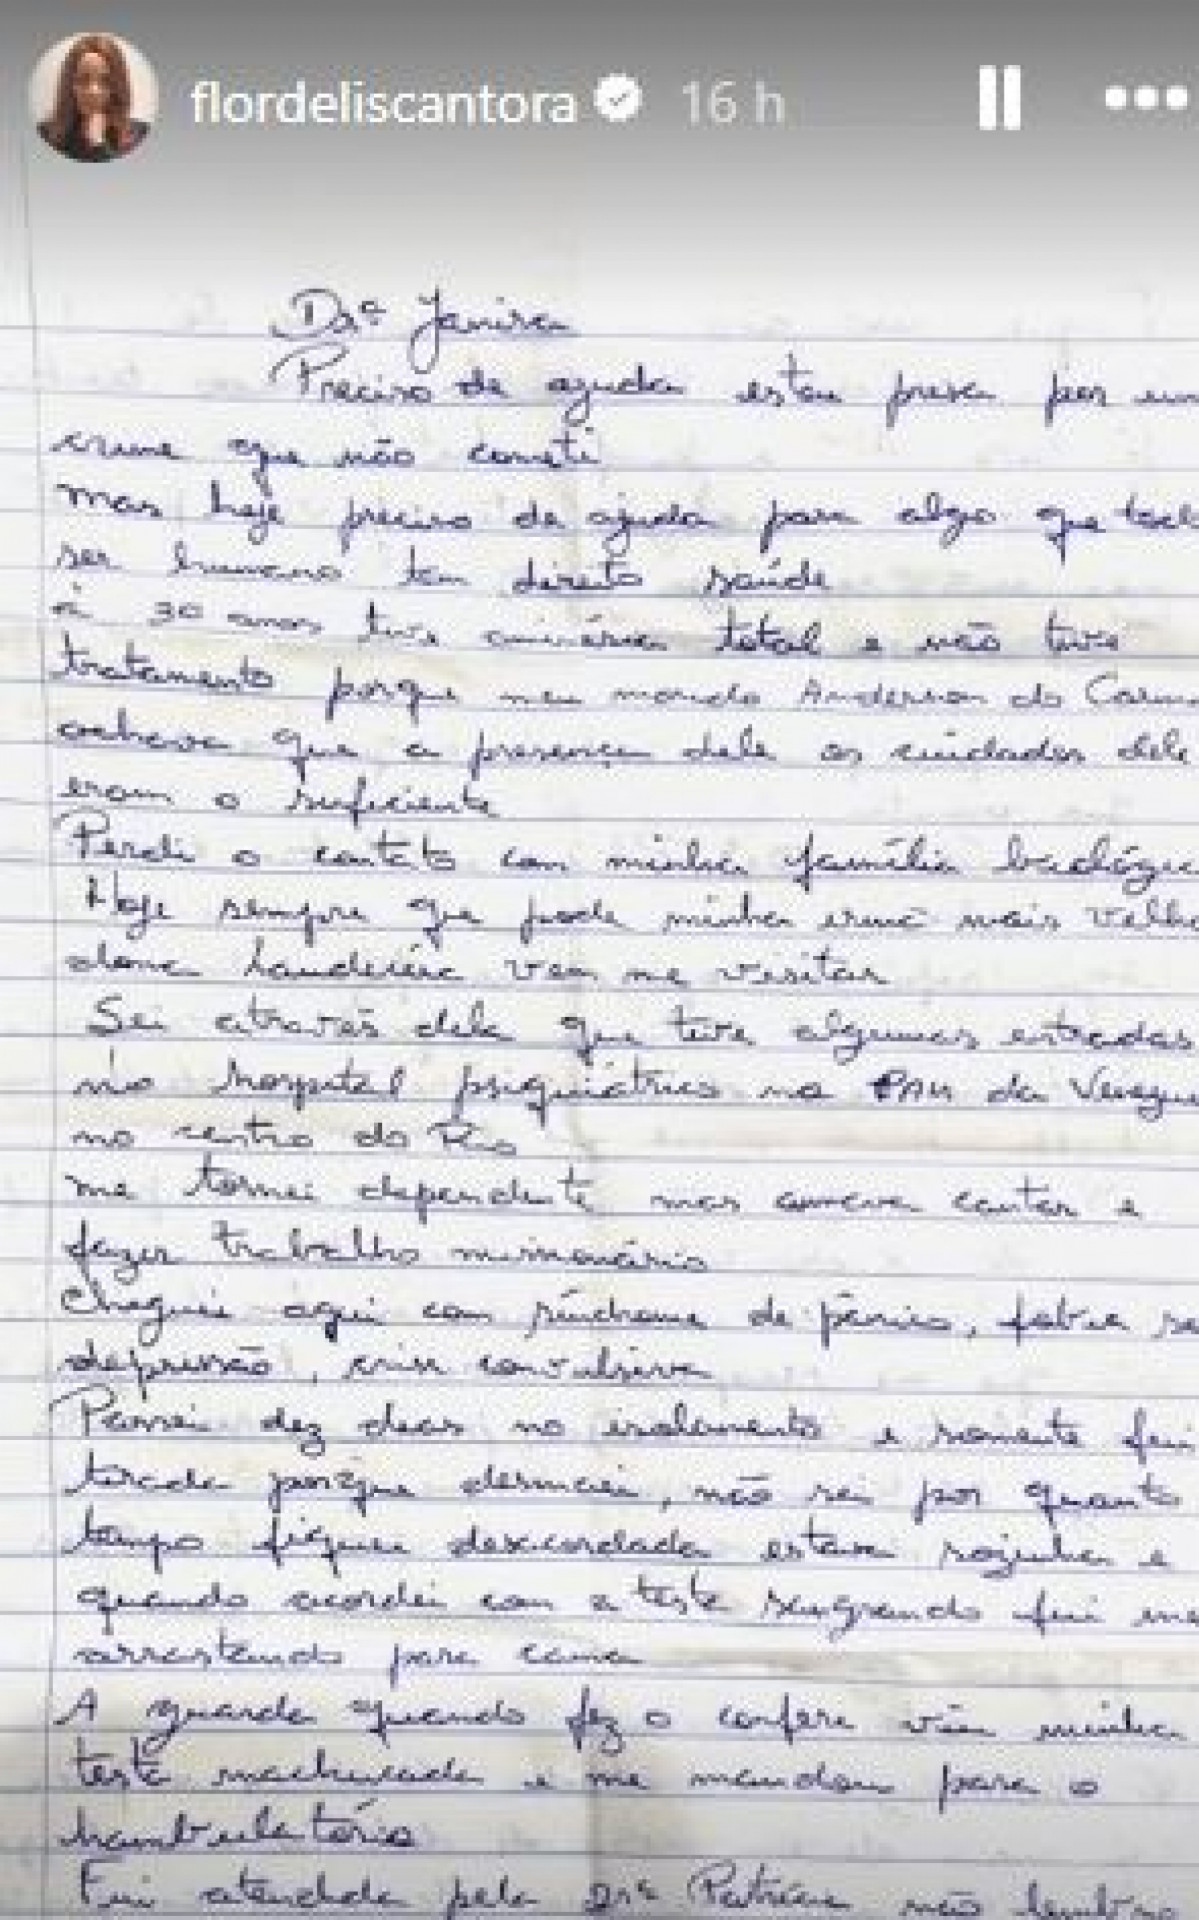 flordeliscantora 16 h
Drª Janira
Preciso de ajuda estou presa por um
crime que não cometi
mas hoje preciso de ajuda para algo que tod
ser humano tem direito saúde
à 30 anos tive aminésia total e não tive
tratamento porque meu marido Anderson do Carm
achava que a presença dele os cuidados dele
eram o suficiente
Perdi o contato com minha família biológic
Hoje sempre que pode minha irmã mais velha
dona Laudicéia vem me visitar
Sei através dela que tive algumas entradas
no hospital psiquiátrico no PAM da
no centro do Rio
me tornei dependente mas amava cantar e
fazer trabalho missionário
Cheguei aqui com síndrome de pânico,
depressão, crise convulsiva
Passei dez dias no isolamento e somente fui
tirada porque desmaiei, não sei por quanto
tempo fiquei desacordada estava sozinha e
quando acordei com a testa sangrando fui me
arrastando para cama
A guarda quando fez o confere viu minha
testa machucada e me mandou para o
hambulatório
Fui atendida pela Drª não lembro